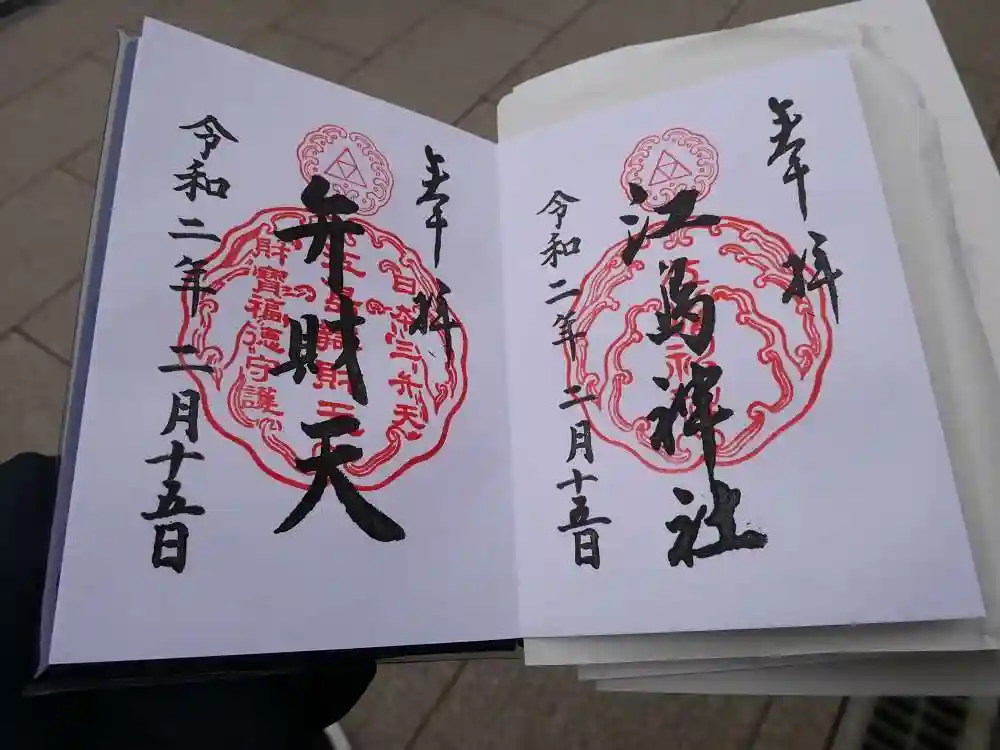 奉拝
江島神社
令和二年 二月十五日
奉拝
弁財天
令和二年 二月十五日
財寶福徳守護